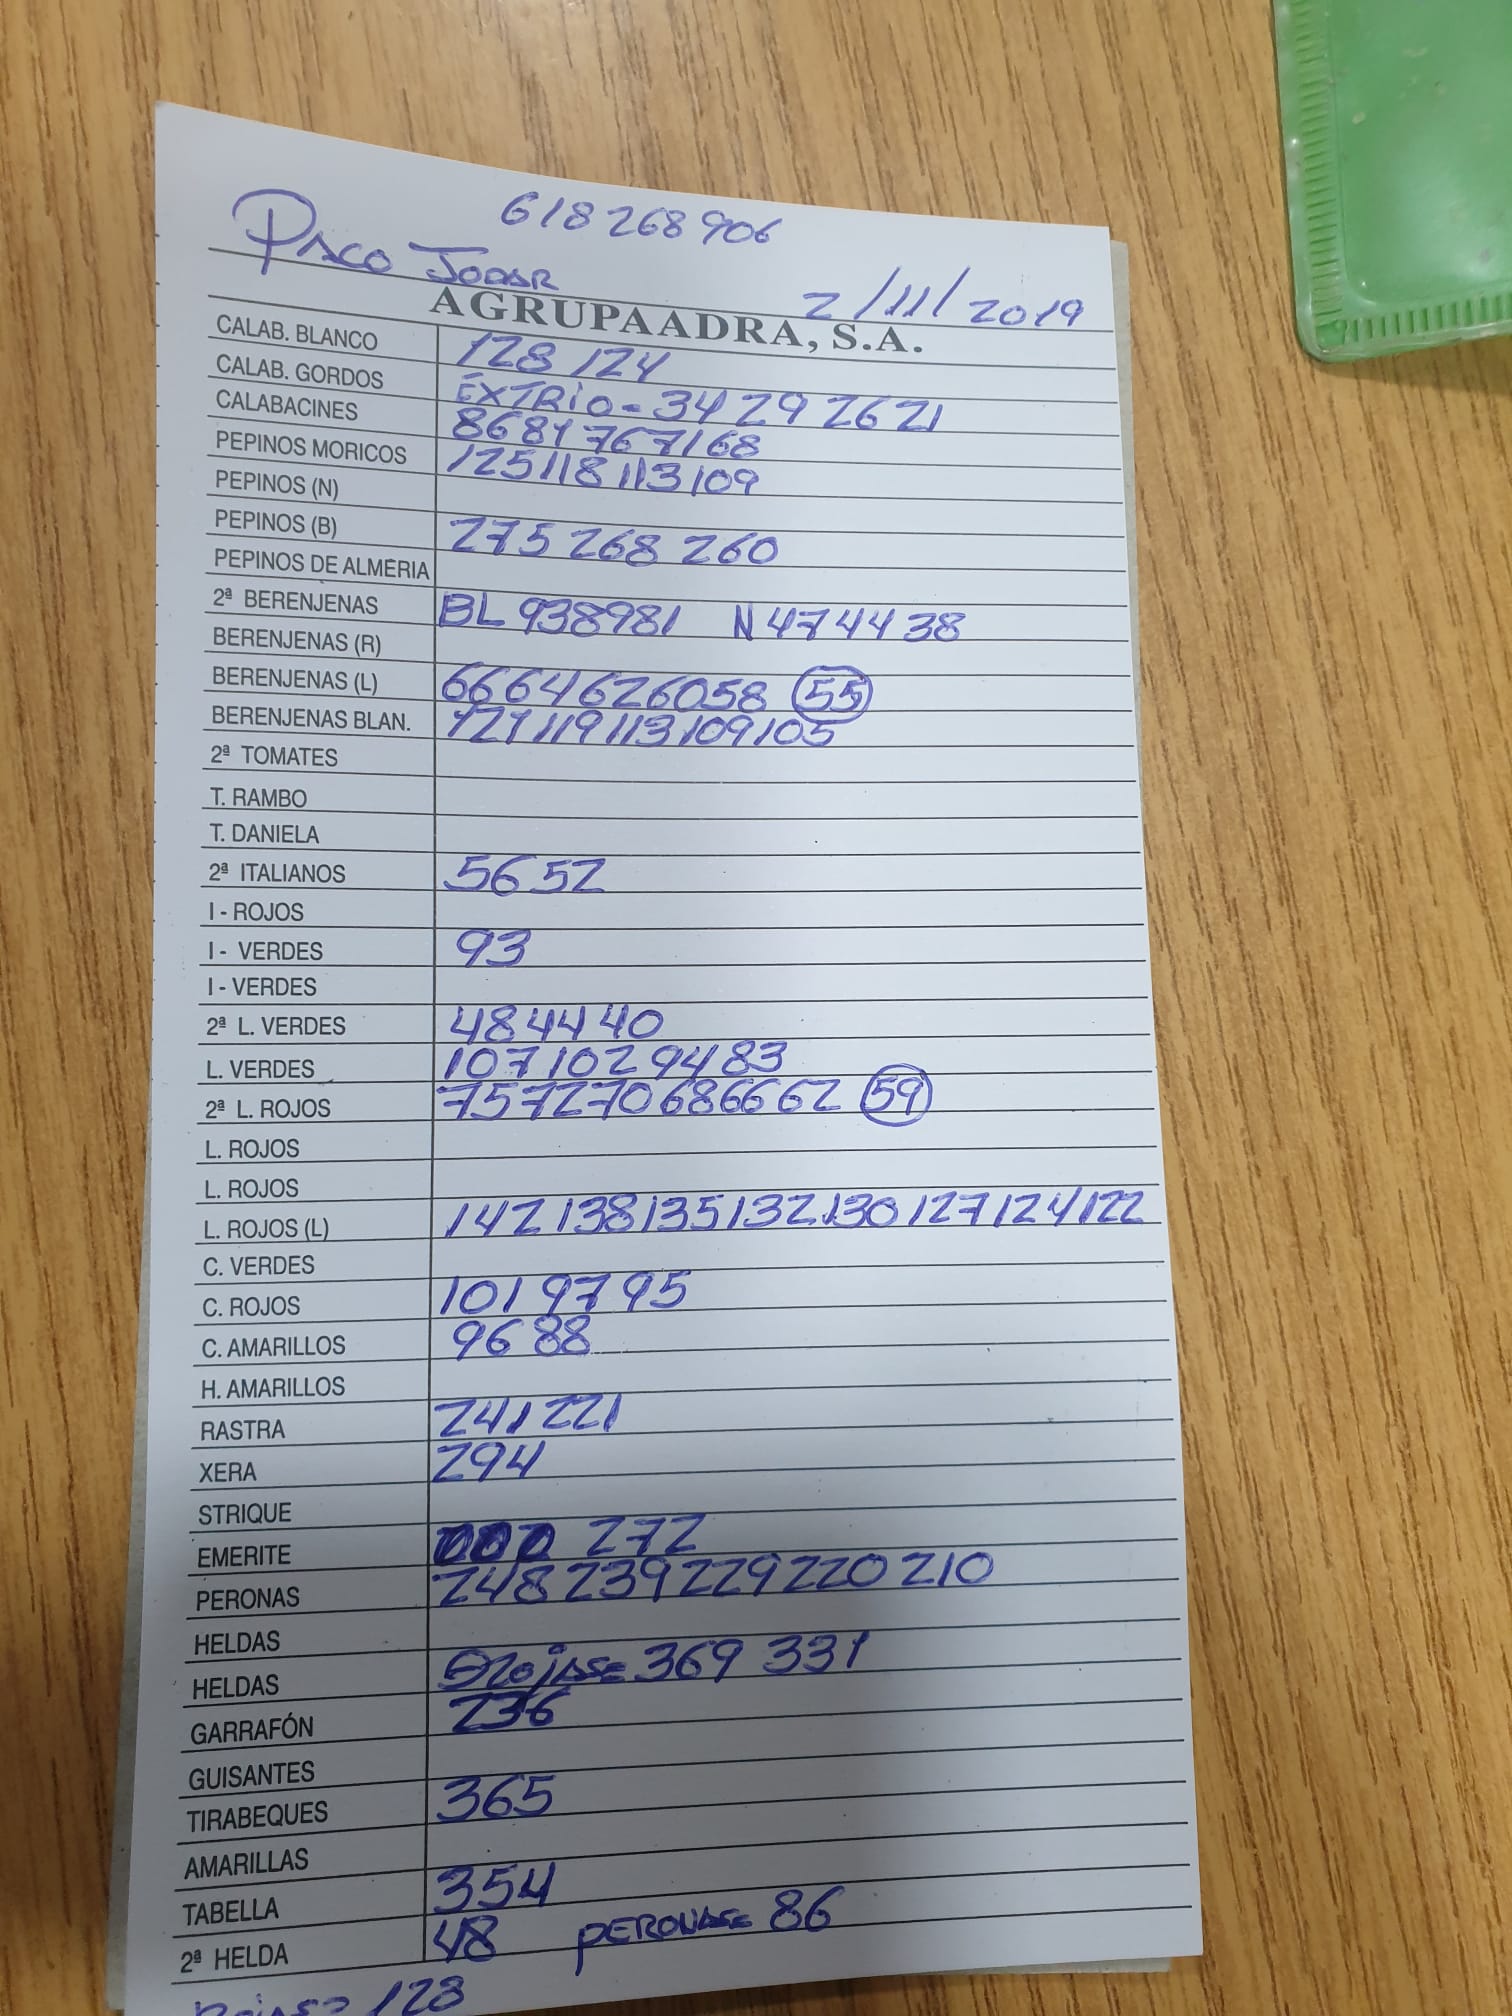 618268906
PACO JODAR
2/11/2019
AGRUPAADRA, S.A.
CALAB. BLANCO 128 124
CALAB. GORDOS EXTRIO - 34 29 26 21
CALABACINES 86 81 76 71 68
PEPINOS MORICOS 125 118 113 109
PEPINOS (N)
PEPINOS (B) 275 268 260
PEPINOS DE ALMERIA
2ª BERENJENAS BL 93 89 81 N 47 44 38
BERENJENAS (R)
BERENJENAS (L) 66 64 62 60 58 55
BERENJENAS BLAN. 121 119 113 109 105
2ª TOMATES
T. RAMBO
T. DANIELA
2ª ITALIANOS 56 52
I - ROJOS
I - VERDES 93
I - VERDES
2ª L. VERDES 48 44 40
L. VERDES 107 102 94 83
2ª L. ROJOS 75 72 70 68 66 62 59
L. ROJOS
L. ROJOS
L. ROJOS (L) 142 138 135 132 130 127 124 122
C. VERDES
C. ROJOS 101 97 95
C. AMARILLOS 96 88
H. AMARILLOS
RASTRA 241 221
XERA 294
STRIQUE
EMERITE 272
PERONAS 248 239 229 220 210
HELDAS
HELDAS 369 331
GARRAFÓN 236
GUISANTES
TIRABEQUES 365
AMARILLAS
TABELLA 354
2ª HELDA 48 PERONASE 86
128